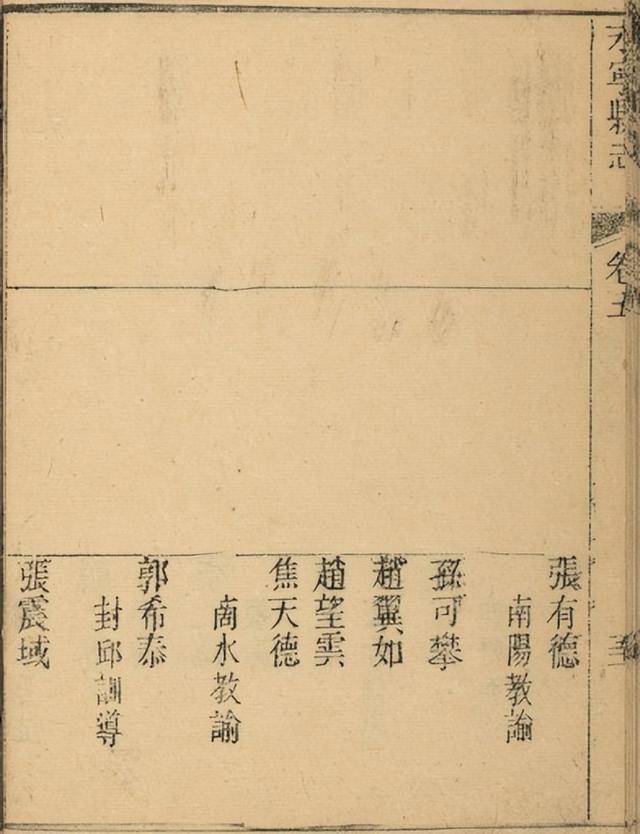 永寧縣志
卷五
張有德
南陽教諭
孫可攀
趙翼如
趙望雲
焦天德
商水教諭
郭希泰
封邱訓導
張震域